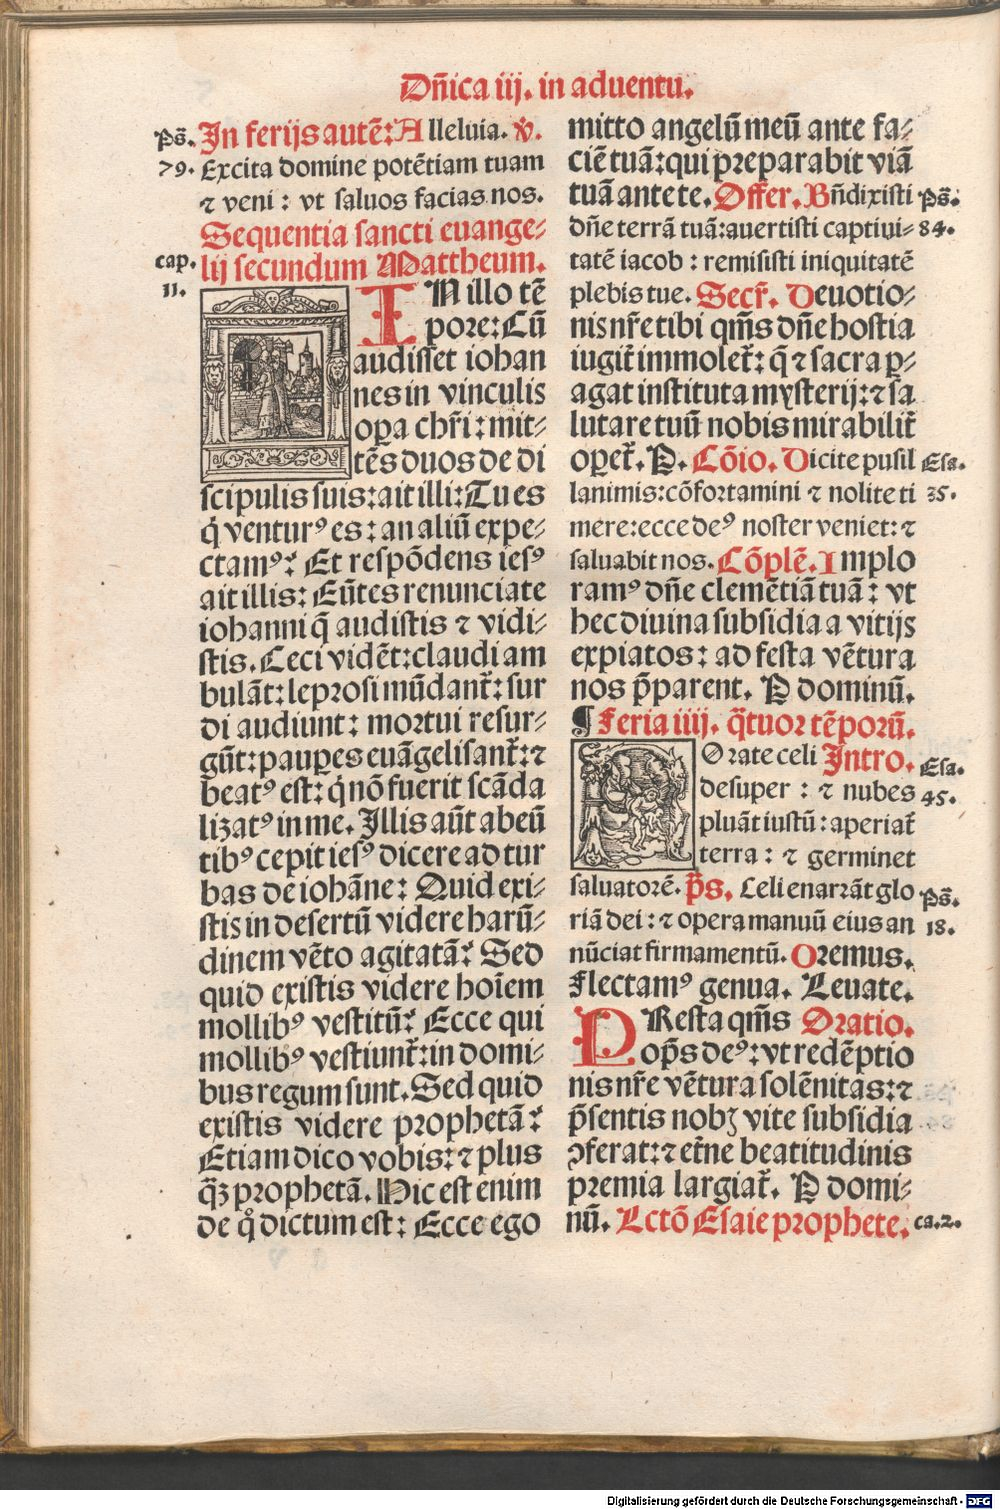 Dñica iij. in aduentu.
Ps̃. In ferijs autē: Alleluia. ℣.
79. Excita domine potētiam tuam
⁊ veni: vt saluos facias nos.
Sequentia sancti euange⸗
cap. lij secundum Mattheum.
11. IN illo tē
pore: Cū
audisset iohan
nes in vinculis
oꝑa chr̃i: mit⸗
tēs duos de di
scipulis suis: ait illi: Tu es
q̇ venturꝰ es: an aliū expe⸗
ctamꝰ? Et respōdens iesꝰ
ait illis: Eūtes renunciate
iohanni q̄ audistis ⁊ vidi⸗
stis. Ceci vidēt: claudi am
bulāt: leprosi mūdant̃: sur
di audiunt: mortui resur⸗
gūt: pauꝑes euāgelisant̃: ⁊
beatꝰ est: q̇ nō fuerit scāda
lizatꝰ in me. Illis aūt abeū
tibꝰ cepit iesꝰ dicere ad tur
bas de iohāne: Quid exi⸗
stis in desertū videre harū⸗
dinem vēto agitatā? Sed
quid existis videre hoīem
mollibꝰ vestitū? Ecce qui
mollibꝰ vestiunt̃: in domi⸗
bus regum sunt. Sed quid
existis videre prophetā?
Etiam dico vobis: ⁊ plus
q̄ꝫ prophetā. Hic est enim
de qͦ dictum est: Ecce ego
mitto angelū meū ante fa⸗
ciē tuā: qui preparabit viā
tuā ante te. Offer. Bñdixisti Ps̃.
dñe terrā tuā: auertisti captiui⸗ 84.
tatē iacob: remisisti iniquitatē
plebis tue. Secr̃. Deuotio⸗
nis nr̃e tibi qm̃s dñe hostia
iugit̃ immolet̃: q̄ ⁊ sacra ꝑ⸗
agat instituta mysterij: ⁊ sa
lutare tuū nobis mirabilit̃
oꝑet̃. P. Cōio. Dicite pusil Esa.
lanimis: cōfortamini ⁊ nolite ti 35.
mere: ecce deꝰ noster veniet: ⁊
saluabit nos. Cōplē. Implo
ramꝰ dñe clemētiā tuā: vt
hec diuina subsidia a vitijs
expiatos: ad festa vētura
nos p̄parent. P dominū.
¶ Feria iiij. q̄tuor tēporū.
ROrate celi Intro. Esa.
desuper: ⁊ nubes 45.
pluāt iustū: aperiat̃
terra: ⁊ germinet
saluatorē. p̄s. Celi enarrāt glo Ps̃.
riā dei: ⁊ opera manuū eius an 18.
nūciat firmamentū. Oremus.
Flectamꝰ genua. Leuate.
PResta qm̃s Oratio.
op̄s deꝰ: vt redēptio
nis nr̃e vētura solēnitas: ⁊
p̄sentis nobꝫ vite subsidia
ꝯferat: ⁊ et̃ne beatitudinis
premia largiat̃. P domi⸗
nū. Lctō Esaie prophete. ca. 2.
Digitalisierung gefördert durch die Deutsche Forschungsgemeinschaft - DFG